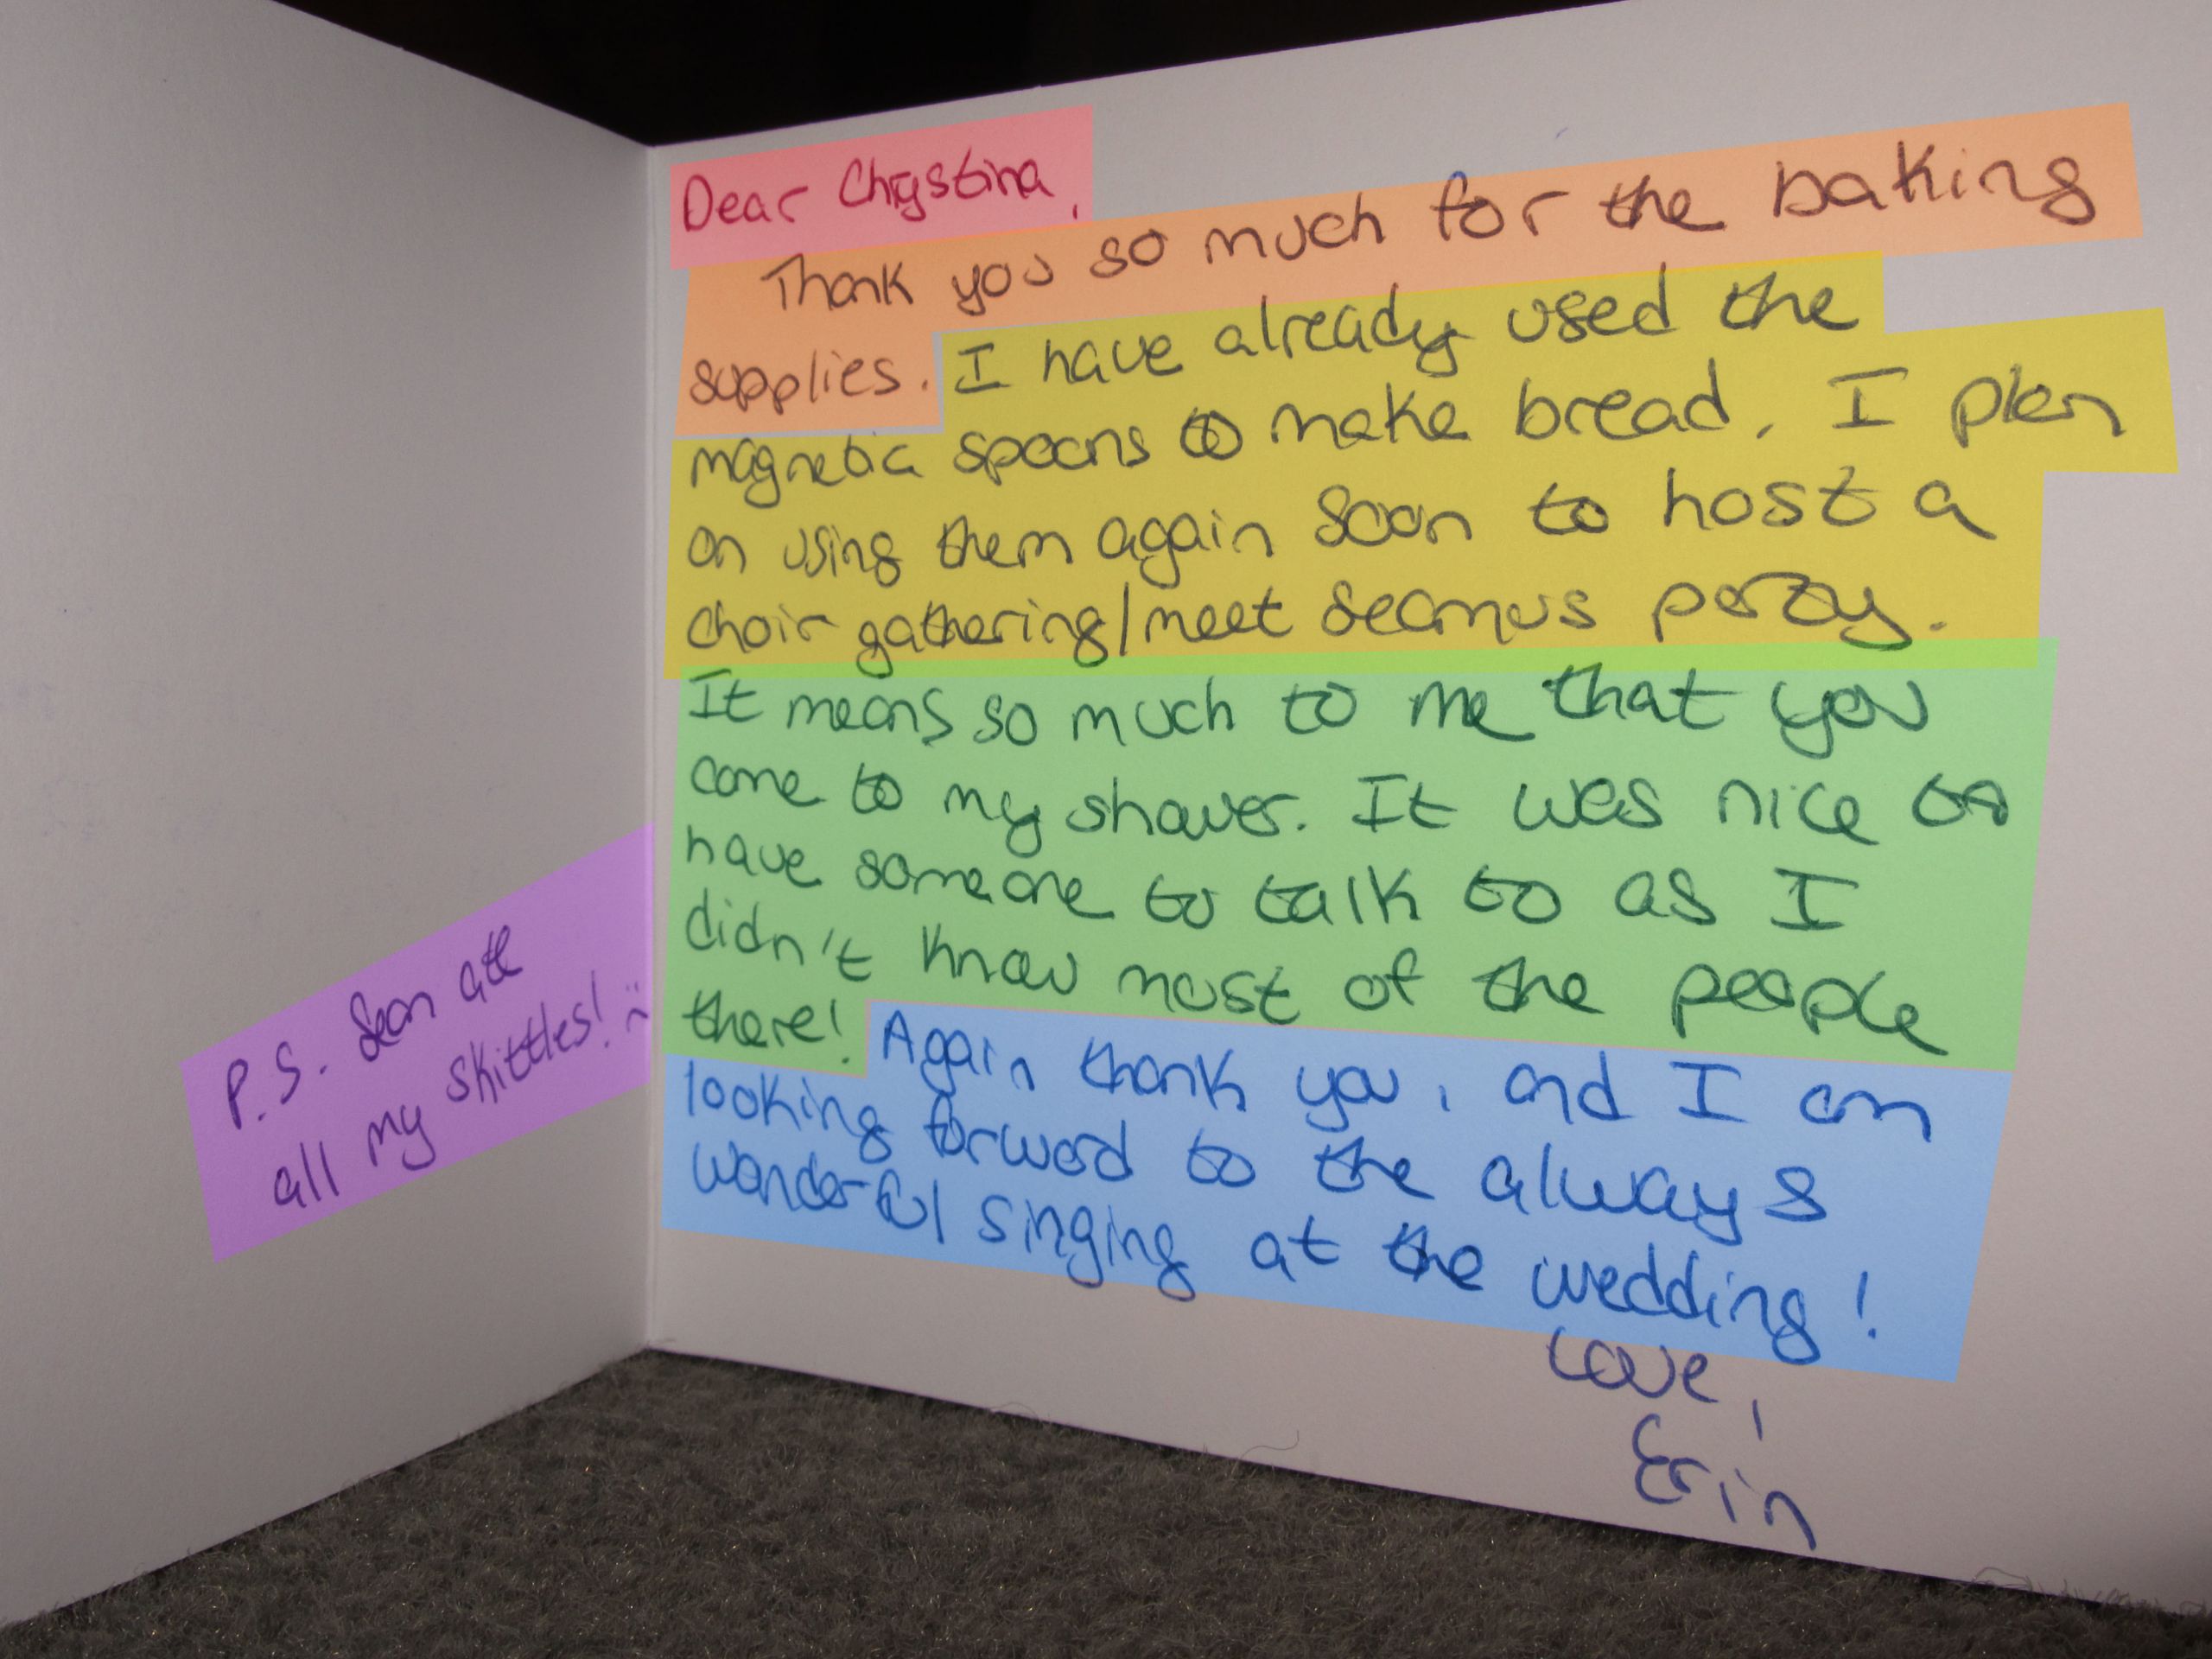 Dear Chrystina,
Thank you so much for the baking
supplies. I have already used the
magnetic spoons to make bread. I plan
on using them again soon to host a
choir gathering/meet Seamus party.
It means so much to me that you
came to my shower. It was nice to
have someone to talk to as I
didn't know most of the people
there! Again thank you, and I am
looking forward to the always
wonderful singing at the wedding!
Love,
Erin
P.S. Sean ate
all my skittles! :(